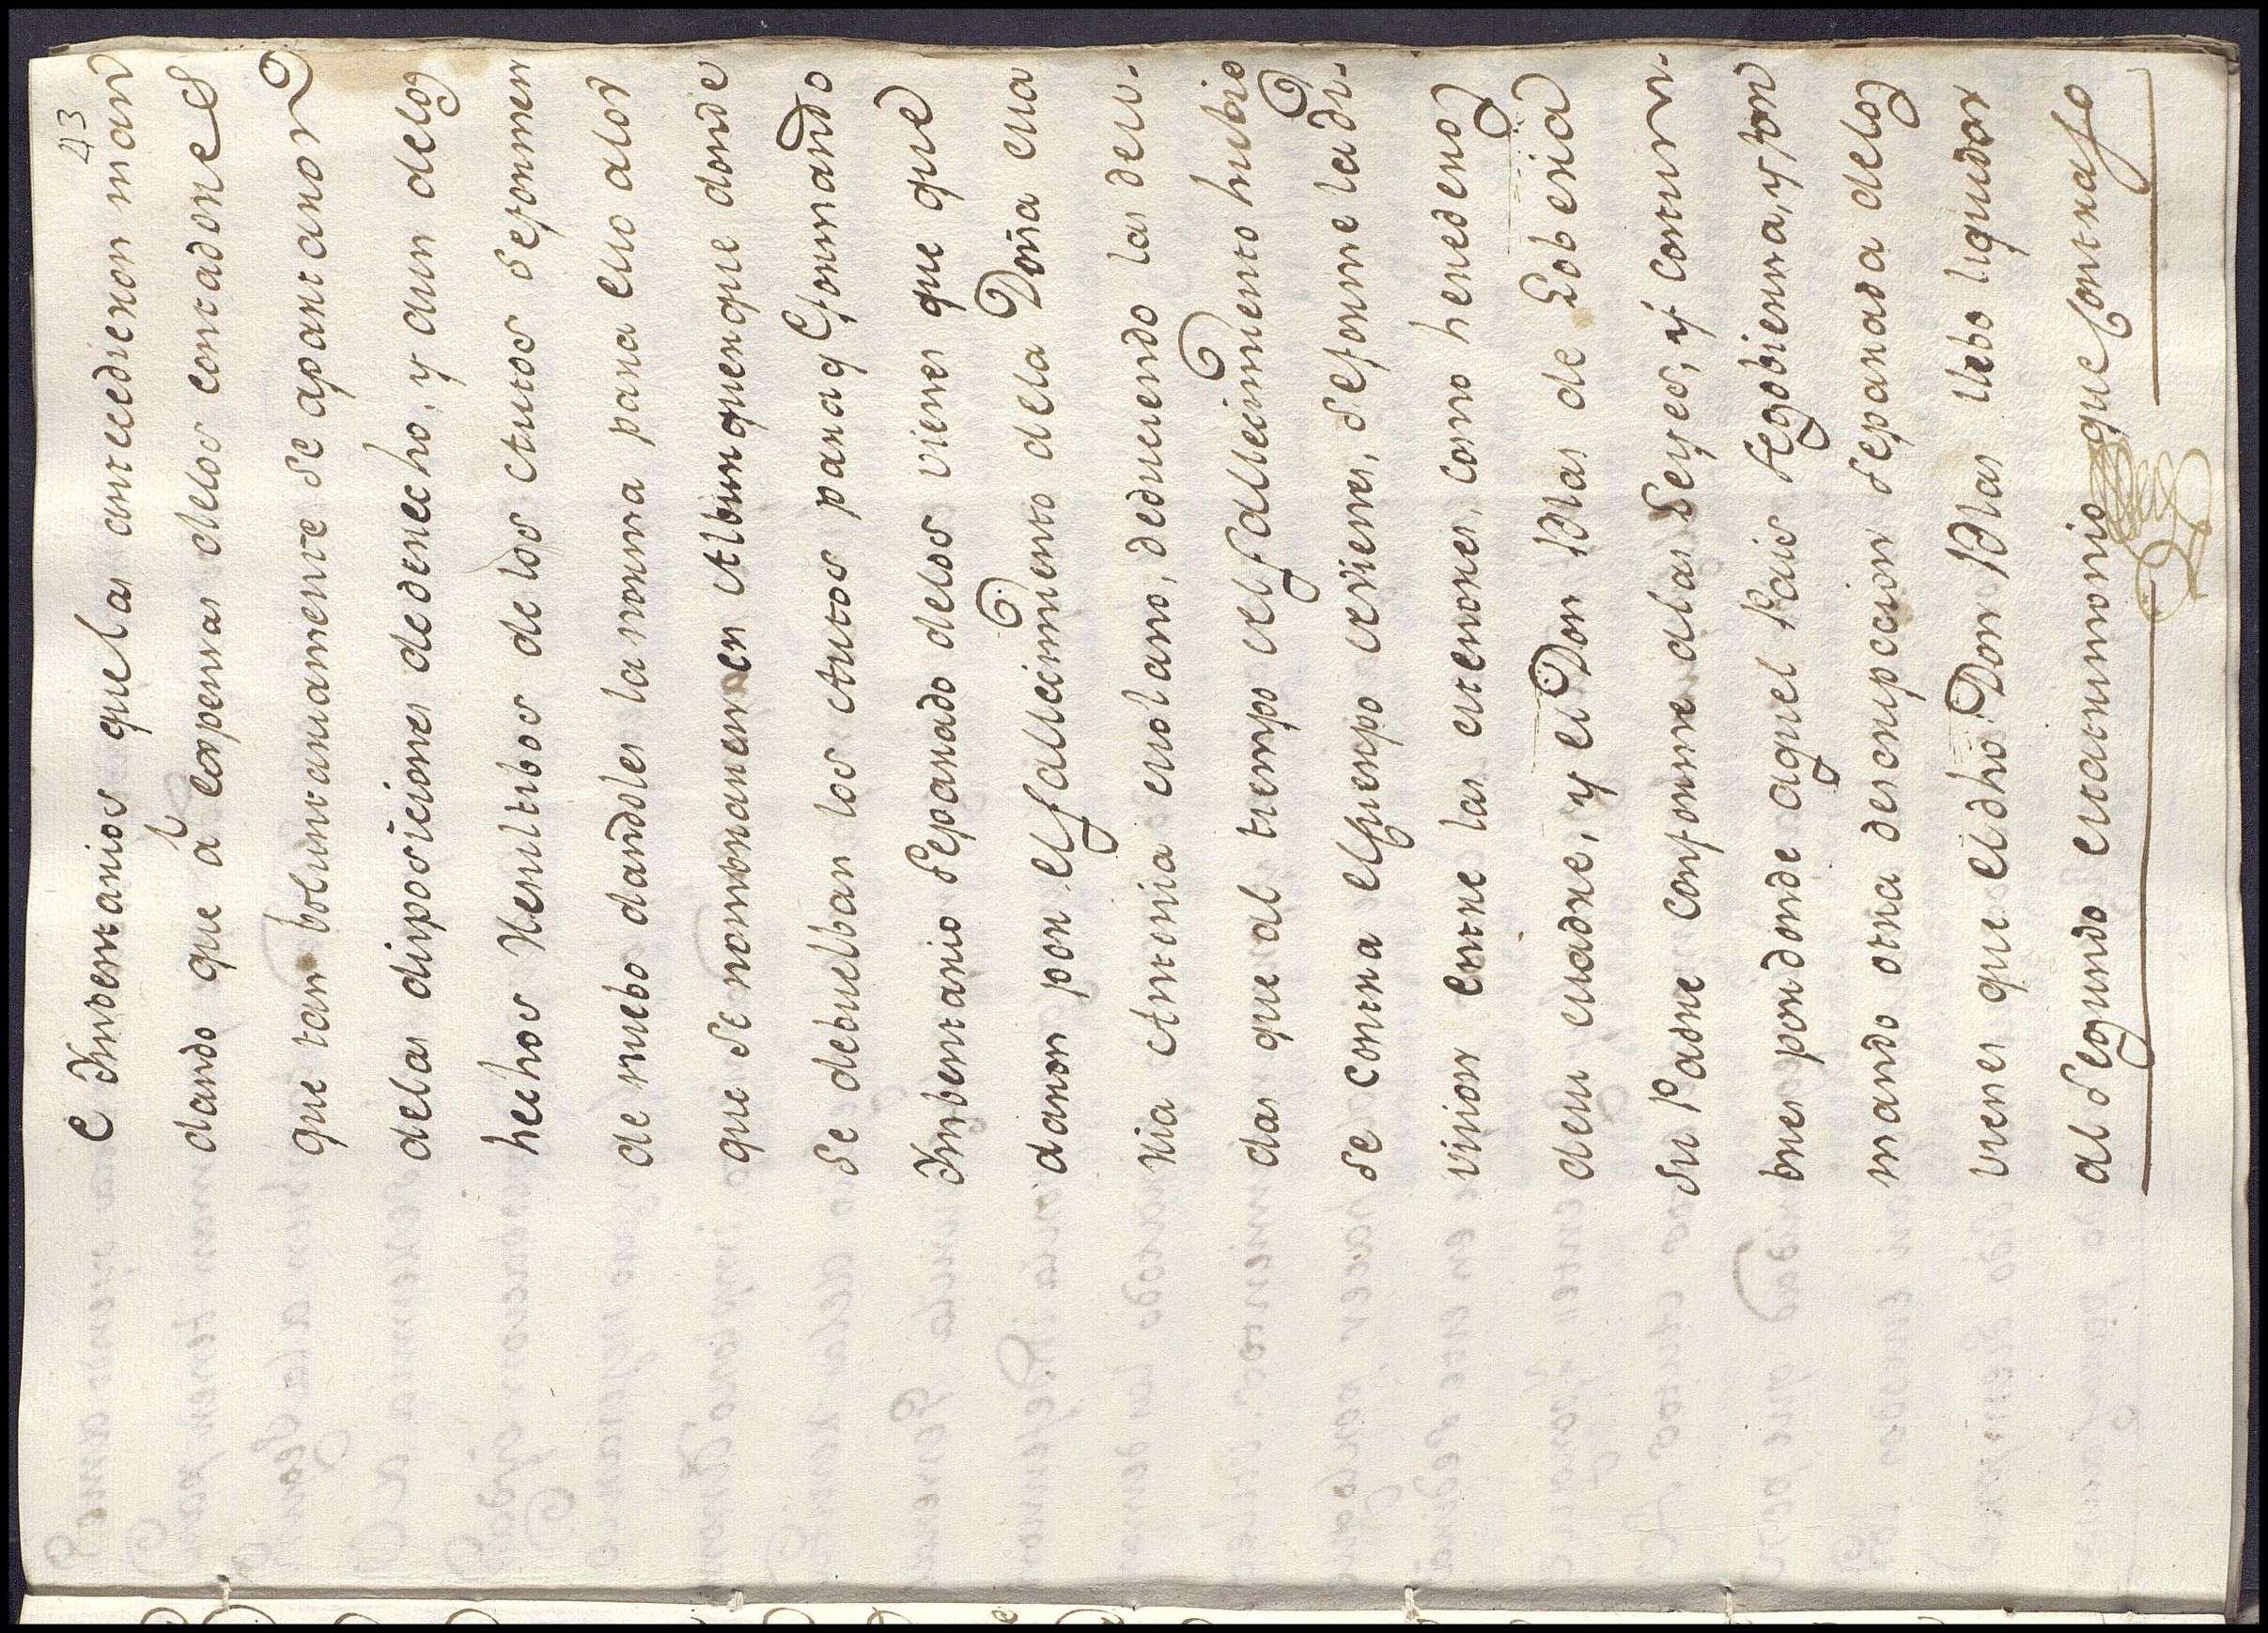 43
e Inventarios que las antecedieron man
dando que á expensas delos contadores
que tan boluntariamente se apartaron
delas disposiciones de derecho, y aun delos
hechos Resultibos delos Autos seformen
de nuebo dandoles la norma para ello alos
que se nombraren en Alburquerque donde
se debuelban los Autos para q formando
Inbentario separado delos vienes que que
daron por el fallecimiento dela Doña Ma
ria Antonia Molano, deduciendo las deu-
das que al tiempo del fallecimiento hubie
se contra el cuerpo de vienes, se forme la di-
vision entre las menores, como herederos
desu madre, y el Don Blas de Loberia
su Padre conforme alas Leyes, y costum-
bres por donde aquel Pais se gobierna, y for
mando otra descripcion separada delos
vienes que el dho Don Blas llebo liquidos
al segundo matrimonio que contrajo